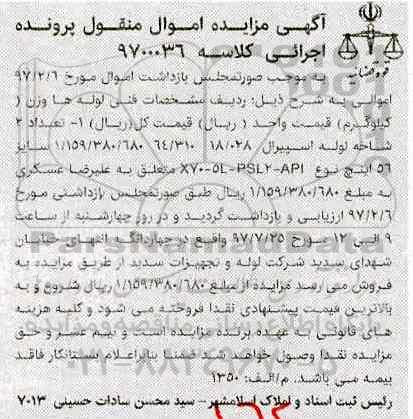 آگهی مزایده اموال منقول پرونده
اجرائی کلاسه ۹۷۰۰۰۳۶
قوه قضائیه
به موجب صورتمجلس بازداشت اموال مورخ ۹۷/۲/۶
اموالی به شرح ذیل: ردیف مشخصات فنی لوله ها وزن (
کیلوگرم) قیمت واحد ( ریال) قیمت کل(ریال) ۱- تعداد ۲
شاخه لوله اسپیرال ۱۸/۰۲۸ ۶۴/۳۱۰ ۱/۱۵۹/۳۸۰/۶۸۰ سایز
۵۶ اینچ نوع X۷۰-۵L-PSL۲-API متعلق به علیرضا عسکری
به مبلغ ۱/۱۵۹/۳۸۰/۶۸۰ ریال طبق صورتمجلس بازداشتی مورخ
۹۷/۲/۶ ارزیابی و بازداشت گردید و در روز چهارشنبه از ساعت
۹ الی ۱۲ مورخ ۹۷/۷/۲۵ واقع در چهاردانگه انتهای خیابان
شهدای سدید شرکت لوله و تجهیزات سدید از طریق مزایده به
فروش می رسد مزایده از مبلغ ۱/۱۵۹/۳۸۰/۶۸۰ ریال شروع و به
بالاترین قیمت پیشنهادی نقدا فروخته می شود و کلیه هزینه
های قانونی به عهده برنده مزایده است و نیم عشر و حق
مزایده نقدا وصول خواهد شد ضمنا بنابراعلام بستانکار فاقد
بیمه می باشد. م/الف: ۱۳۵۰
رئیس ثبت اسناد و املاک اسلامشهر – سید محسن سادات حسینی ۷۰۱۳